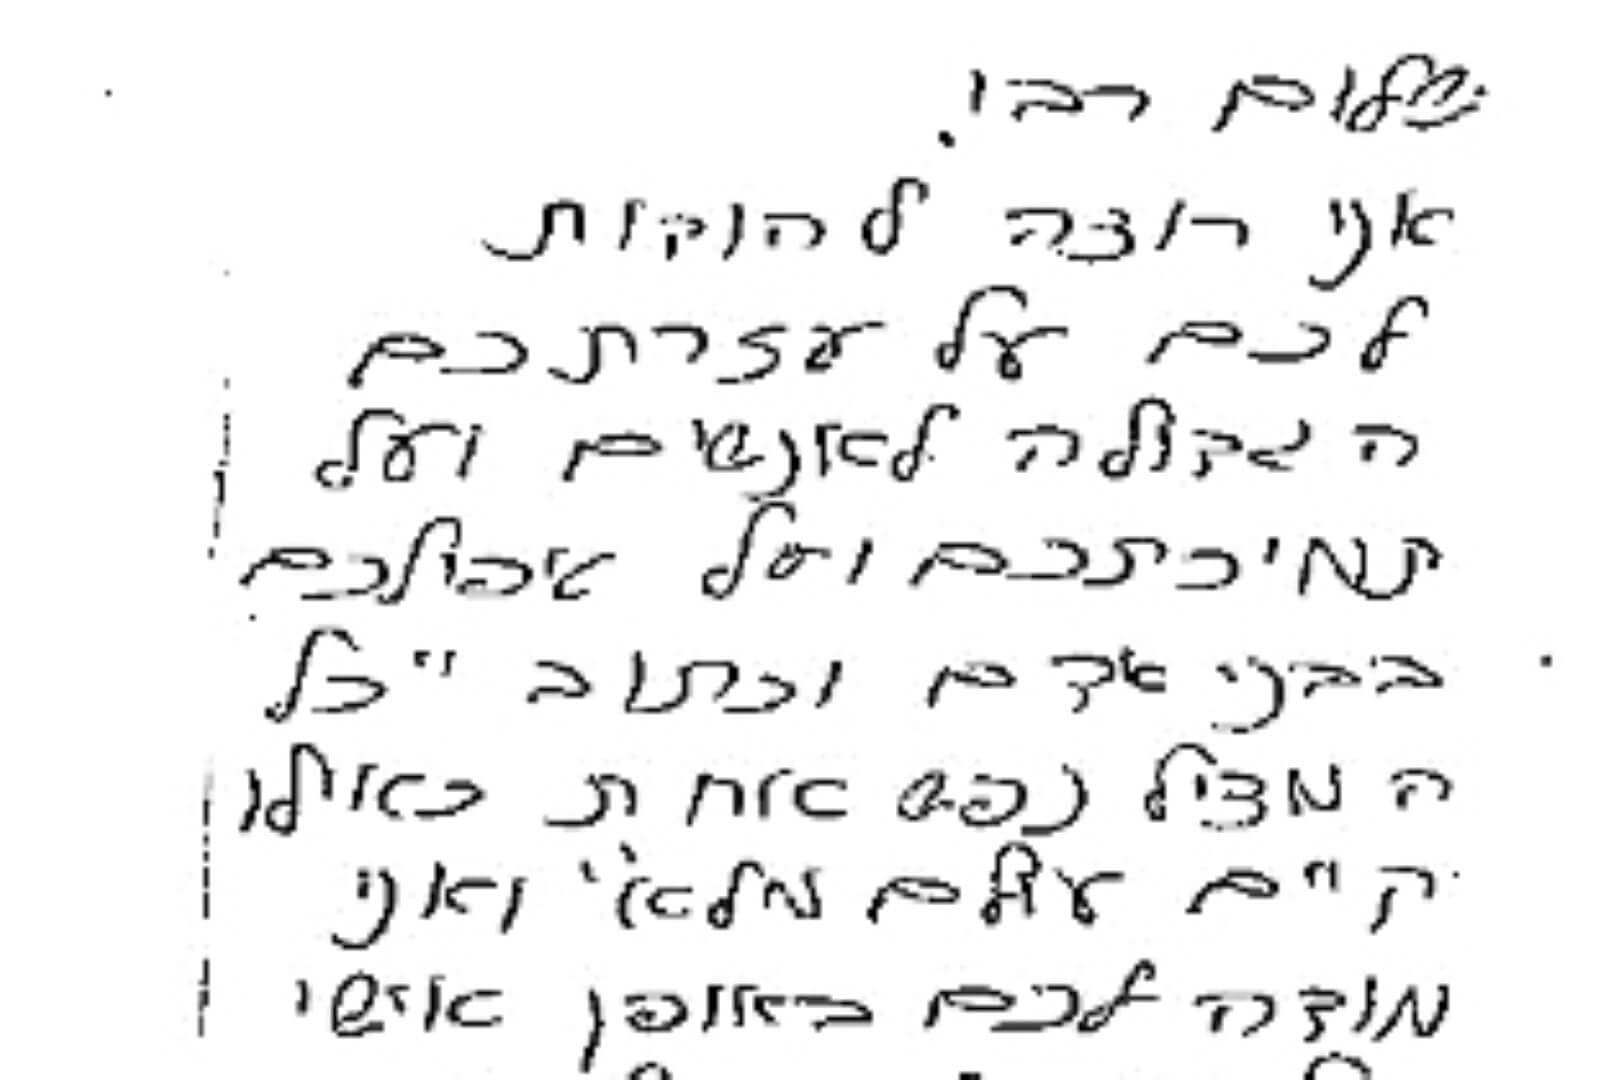 שלום רבי.
אני רוצה להוקות
לכם על עזרתכם
הגדולה לאנשים ועל
תמיכתכם ועל טיפולכם
בבני אדם וכתוב "כל
המציל נפש אחת כאילו
קיים עולם מלא" ואני
מודה לכם באופן אישי